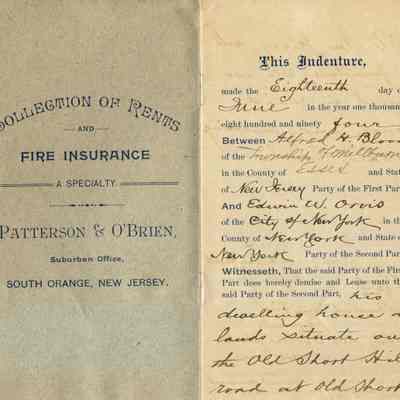 COLLECTION OF RENTS
AND
FIRE INSURANCE
A SPECIALTY.
PATTERSON & O'BRIEN,
Suburban Office,
SOUTH ORANGE, NEW JERSEY.
This Indenture,
made the Eighteenth day o
June in the year one thousan
eight hundred and ninety four
Between Alfred H. Bloo
of the Township of Millburn
in the County of Essex and Stat
of New Jersey Party of the First Par
And Edwin W. Orvis
of the City of New York in th
County of New York and State o
New York Party of the Second Par
Witnesseth, That the said Party of the Firs
Part does hereby demise and Lease unto th
said Party of the Second Part, his
dwelling house a
lands situate on
the Old Short Hil
road at Old Short